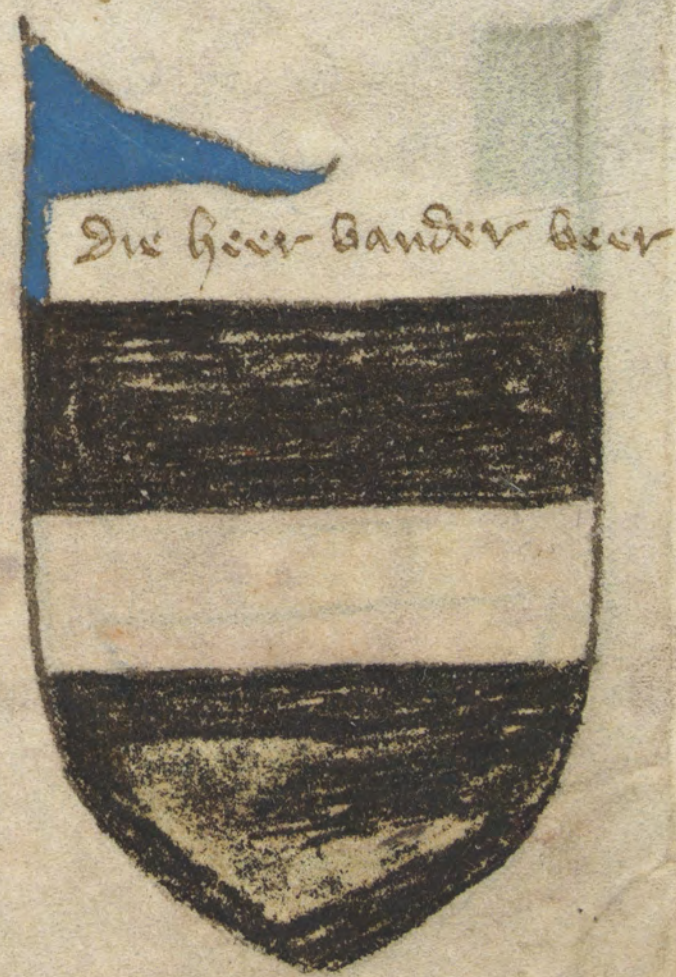 Die heer vander veer